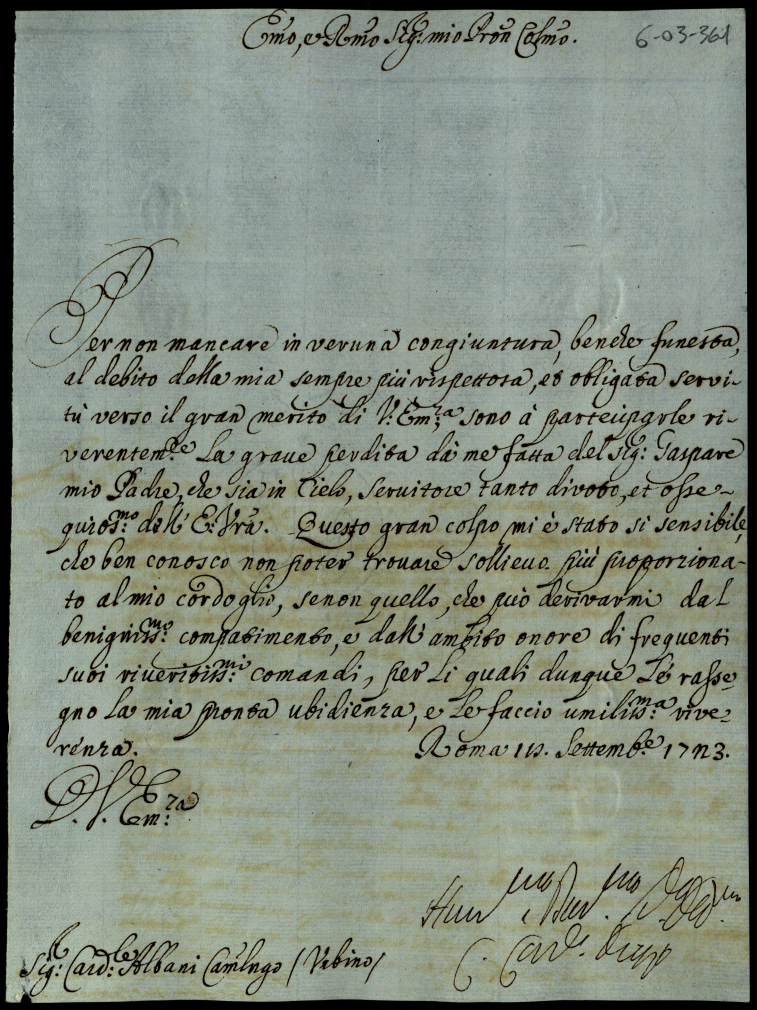 Emo, e Rmo Sig: mio Pron Colmo.
6-03-361
Per non mancare in veruna congiuntura, benche funesta,
al debito della mia sempre più rispettosa, et obligata servi-
tù verso il gran merito di V: Em:za sono à parteciparle ri-
verentem:te La grave perdita dà me fatta del Sig: Gaspare
mio Padre, che sia in Cielo, servitore tanto divoto, et osse-
quios:mo dell' E: Vra. Questo gran colpo mi è stato si sensibile,
che ben conosco non poter trovare sollievo più proporziona-
to al mio cordoglio, se non quello, che può derivarmi dal
benigniss:mo compatimento, e dall' ambito onore di frequenti
suoi riveritiss:mi comandi, per li quali dunque Le rasse-
gno la mia pronta ubidienza, e Le faccio umiliss:ma rive-
renza. Roma Settemb:e 1723.
D. V. Em:za
Sig: Card:le Albani Camlngo (Urbino)
C. Card: